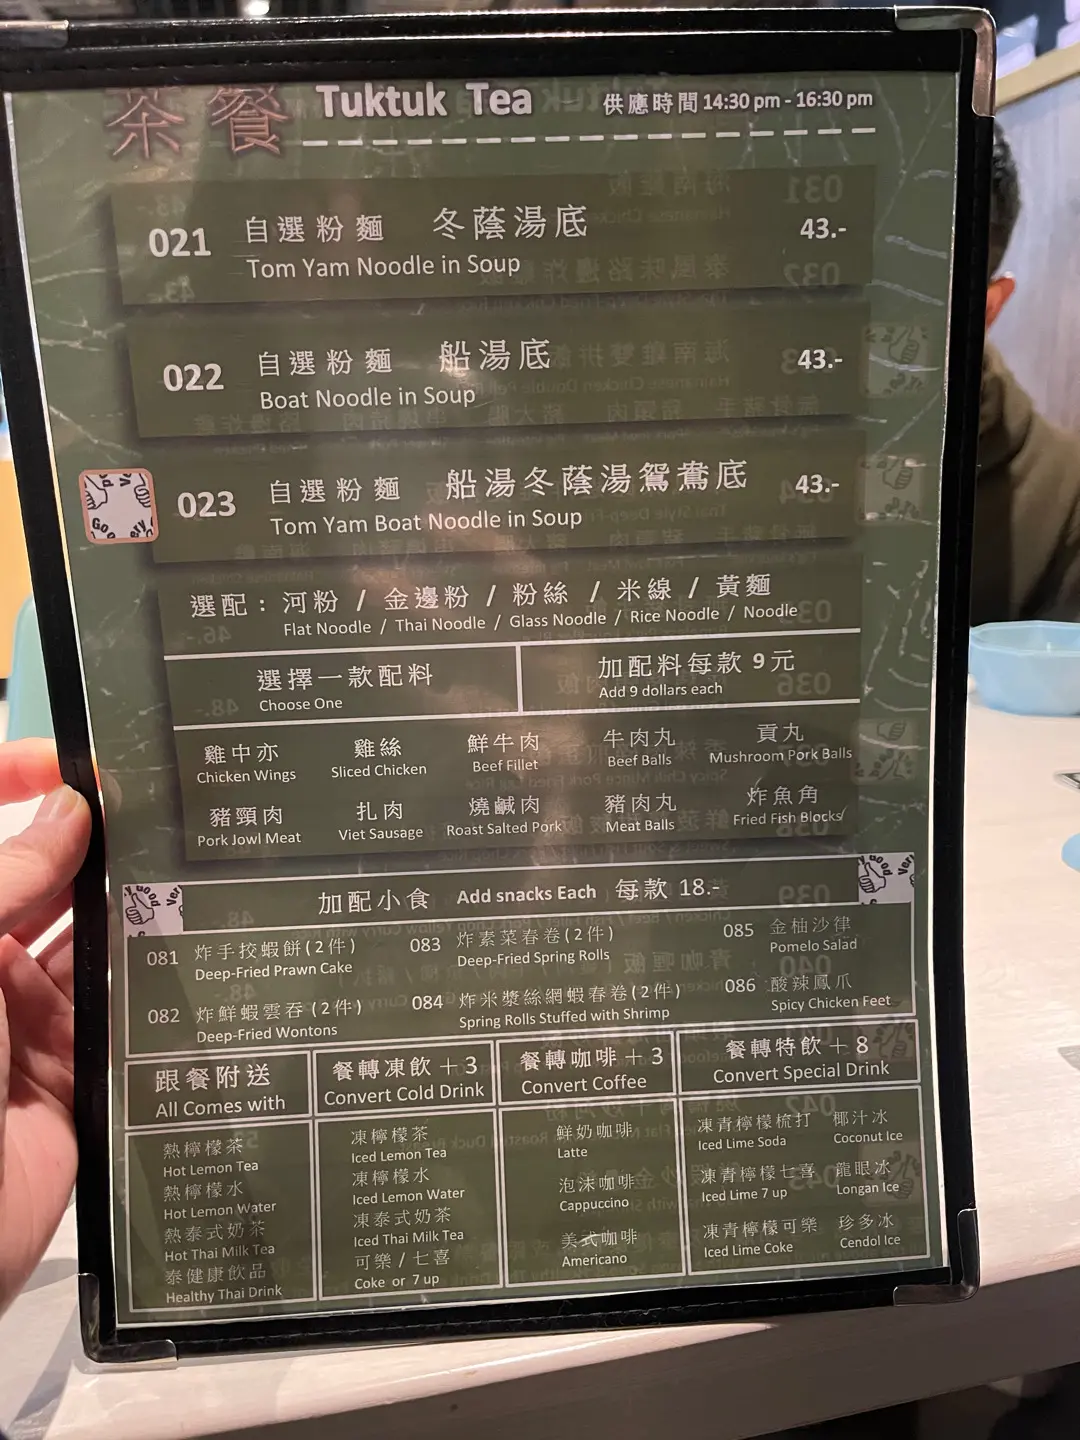 茶餐 Tuktuk Tea – 供應時間 14:30 pm - 16:30 pm
021 自選粉麵 冬蔭湯底 43.-
Tom Yam Noodle in Soup
022 自選粉麵 船湯底 43.-
Boat Noodle in Soup
023 自選粉麵 船湯冬蔭湯鴛鴦底 43.-
Tom Yam Boat Noodle in Soup
選配：河粉 / 金邊粉 / 粉絲 / 米線 / 黃麵
Flat Noodle / Thai Noodle / Glass Noodle / Rice Noodle / Noodle
選擇一款配料
Choose One
加配料每款 9元
Add 9 dollars each
雞中亦 雞絲 鮮牛肉 牛肉丸 貢丸
Chicken Wings Sliced Chicken Beef Fillet Beef Balls Mushroom Pork Balls
豬頸肉 扎肉 燒鹹肉 豬肉丸 炸魚角
Pork Jowl Meat Viet Sausage Roast Salted Pork Meat Balls Fried Fish Blocks
加配小食 Add snacks Each 每款 18.-
081 炸手挍蝦餅(2件) 083 炸素菜春卷(2件) 085 金柚沙律
Deep-Fried Prawn Cake Deep-Fried Spring Rolls Pomelo Salad
082 炸鮮蝦雲吞(2件) 084 炸米漿絲網蝦春卷(2件) 086 酸辣鳳爪
Deep-Fried Wontons Spring Rolls Stuffed with Shrimp Spicy Chicken Feet
跟餐附送
All Comes with
熱檸檬茶
Hot Lemon Tea
熱檸檬水
Hot Lemon Water
熱泰式奶茶
Hot Thai Milk Tea
泰健康飲品
Healthy Thai Drink
餐轉凍飲＋3
Convert Cold Drink
凍檸檬茶
Iced Lemon Tea
凍檸檬水
Iced Lemon Water
凍泰式奶茶
Iced Thai Milk Tea
可樂 / 七喜
Coke or 7 up
餐轉咖啡＋3
Convert Coffee
鮮奶咖啡
Latte
泡沫咖啡
Cappuccino
美式咖啡
Americano
餐轉特飲＋8
Convert Special Drink
凍青檸檬梳打 椰汁冰
Iced Lime Soda Coconut Ice
凍青檸檬七喜 龍眼冰
Iced Lime 7 up Longan Ice
凍青檸檬可樂 珍多冰
Iced Lime Coke Cendol Ice